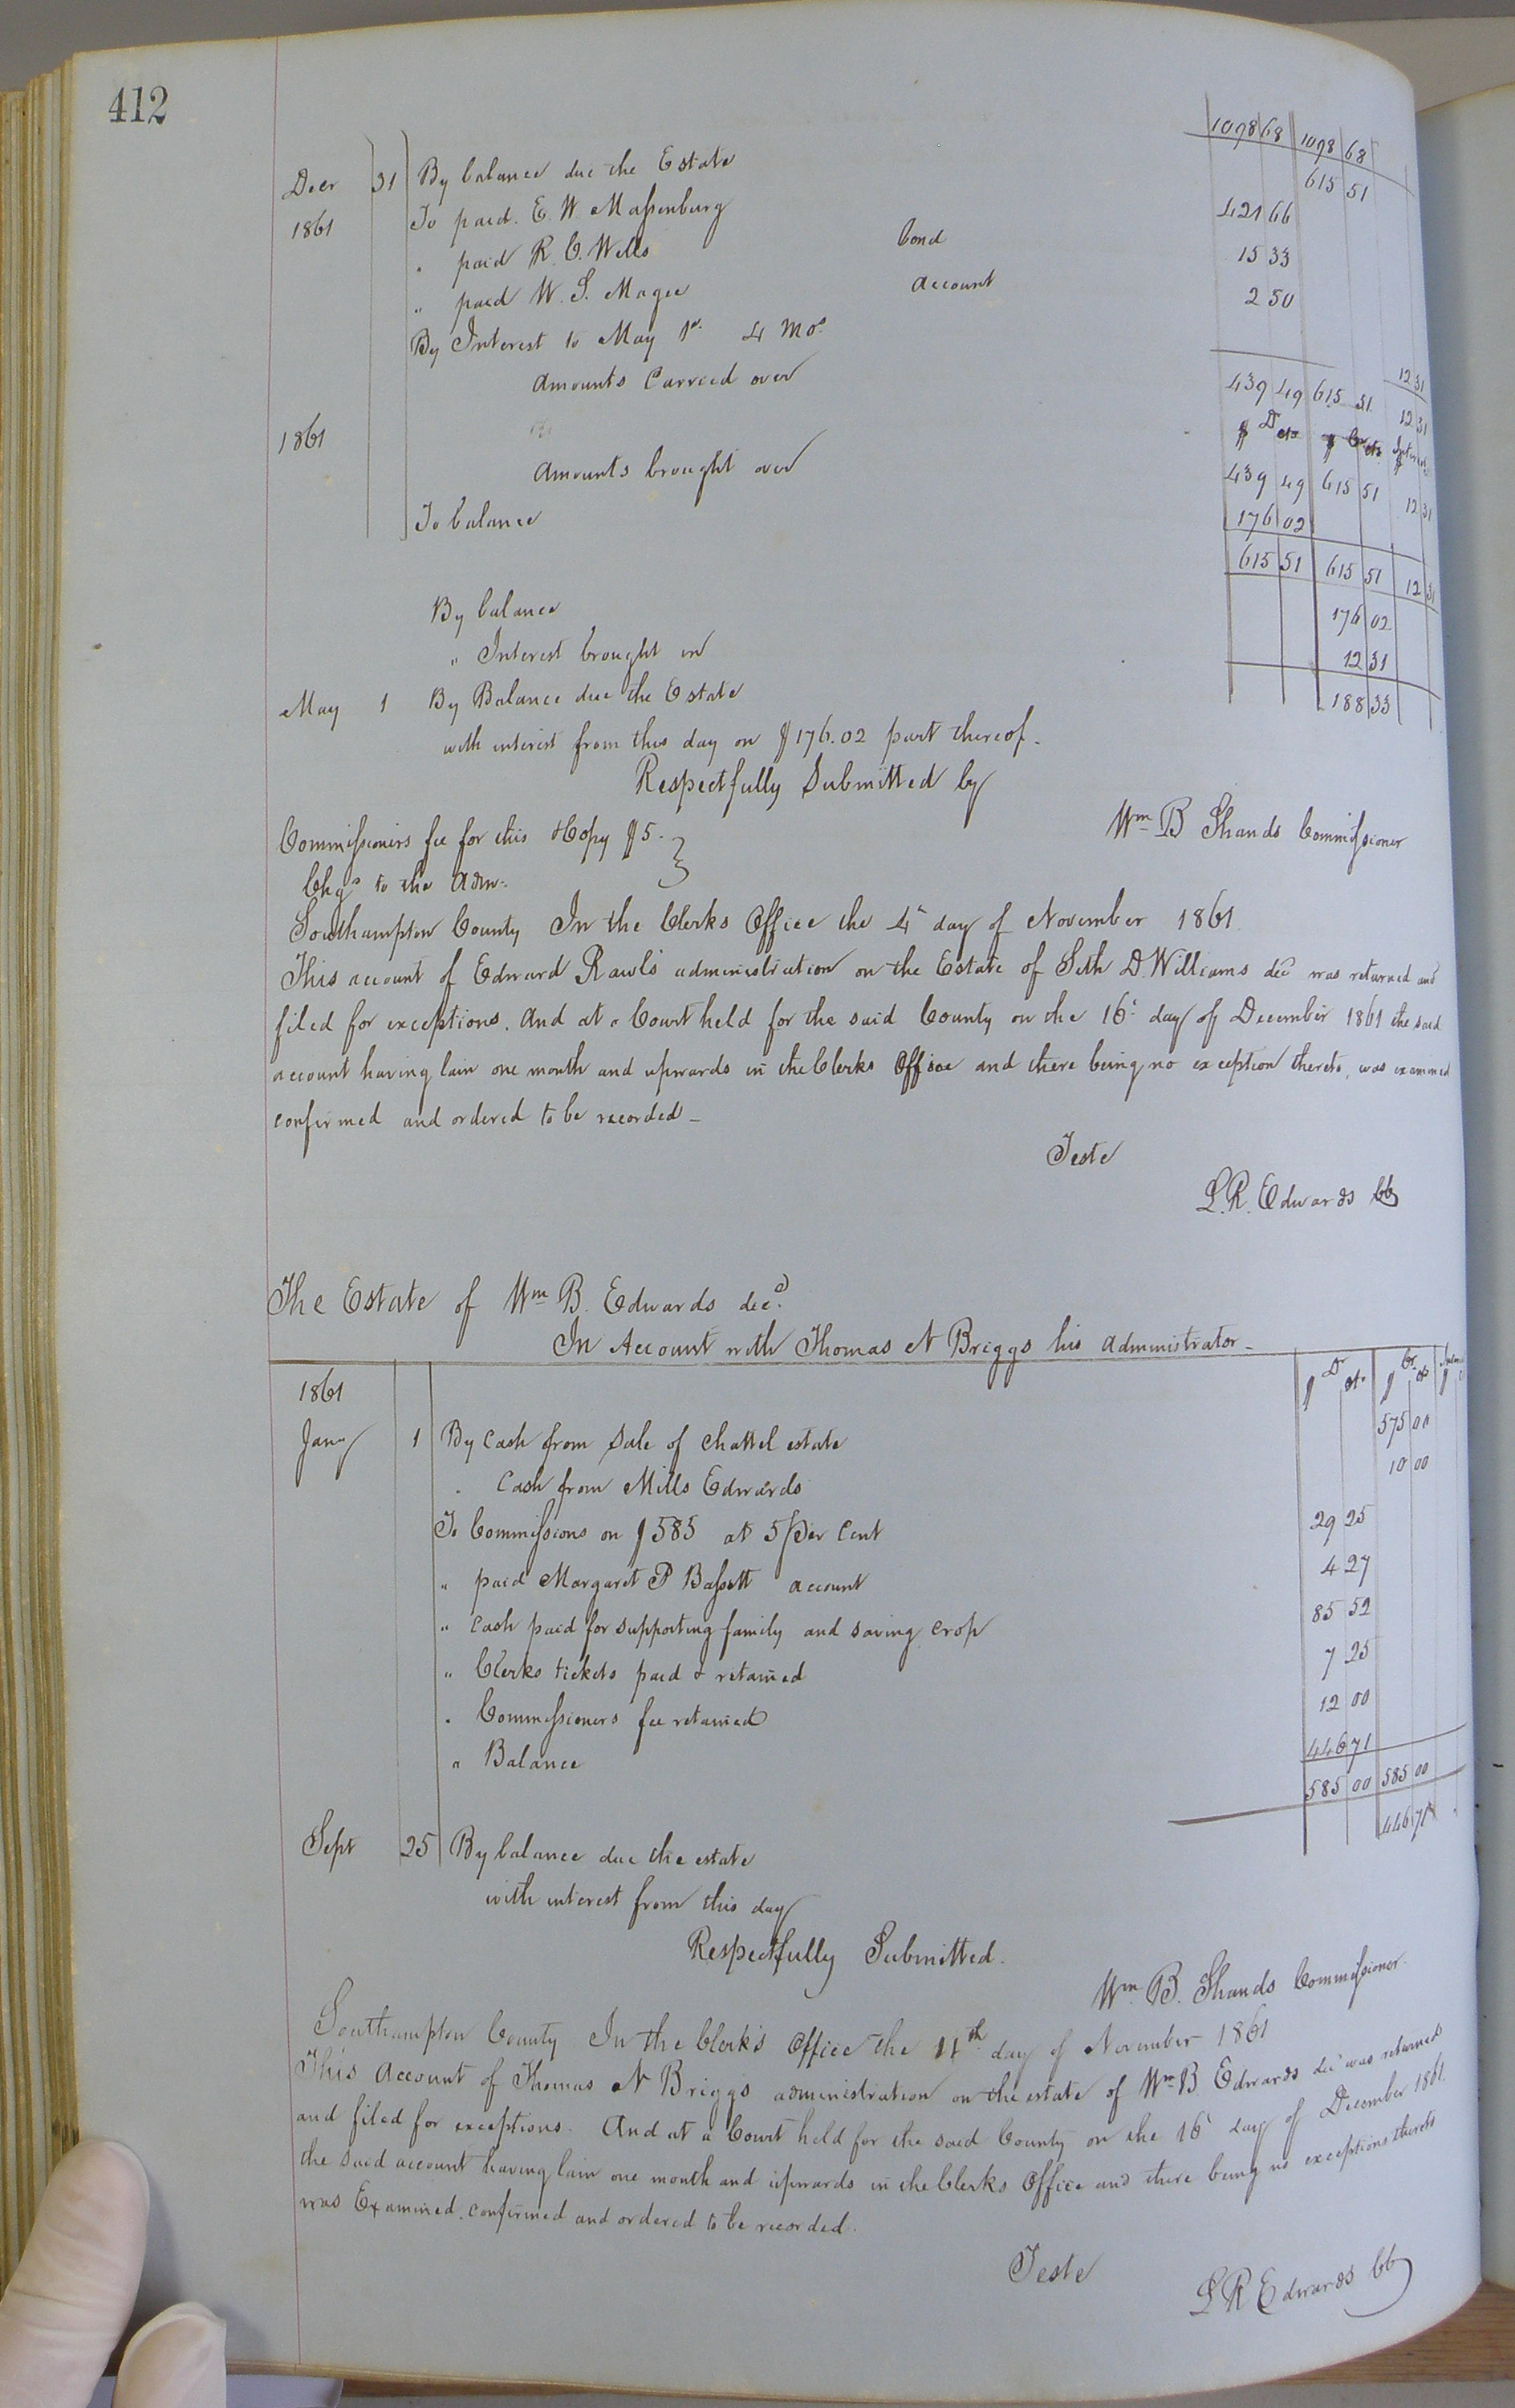 412
1098 68 1098 68
Decr 31 By balance due the Estate 615 51
1861 To paid. E. W. Massenburg 421 66
" paid R. C. Wells bond 15 33
" paid W. S. Magee account 2 50
By Interest to May 1st 4 Mos 12 31
Amounts Carried over 439 49 615 51 12 31
1861 $ Dr cts $ Cr cts Interest
Amounts brought over 439 49 615 51 12 31
To balance 176 02
615 51 615 51 12 31
By balance 176 02
" Interest brought in 12 31
May 1 By Balance due the Estate 188 33
with interest from this day on $176.02 part thereof.
Respectfully Submitted by
Wm B Shands Commissioner
Commissioners fee for this & Copy $5.
Chgd to the Adm.
Southampton County In the Clerks Office the 4th day of November 1861.
This account of Edward Rawls administration on the Estate of Seth D. Williams decd was returned and
filed for exceptions. And at a Court held for the said County on the 16th day of December 1861 the said
account having lain one month and upwards in the Clerks Office and there being no exception thereto, was examined
confirmed and ordered to be recorded_
Teste
L. R. Edwards CC
The Estate of Wm B. Edwards decd.
In Account with Thomas N Briggs his administrator_
1861 $ Dr cts $ Cr cts
Jany 1 By Cash from Sale of Chattel estate 575 00
" Cash from Mills Edwards 10 00
To Commissions on $585 at 5 Per Cent 29 25
" paid Margaret P Bassett account 4 27
" Cash paid for supporting family and saving crop 85 52
" Clerks tickets paid & retained 7 25
" Commissioners fee retained 12 00
" Balance 446 71
585 00 585 00
Sept 25 By balance due the estate 446 71
with interest from this day
Respectfully Submitted.
Wm. B. Shands Commissioner.
Southampton County In the Clerk's Office the 4th day of November 1861
This Account of Thomas N Briggs administration on the estate of Wm B. Edwards decd was returned
and filed for exceptions. And at a Court held for the said County on the 16th day of December 1861.
the said account having lain one month and upwards in the Clerks Office and there being no exceptions thereto
was Examined, confirmed and ordered to be recorded.
Teste
L R Edwards CC